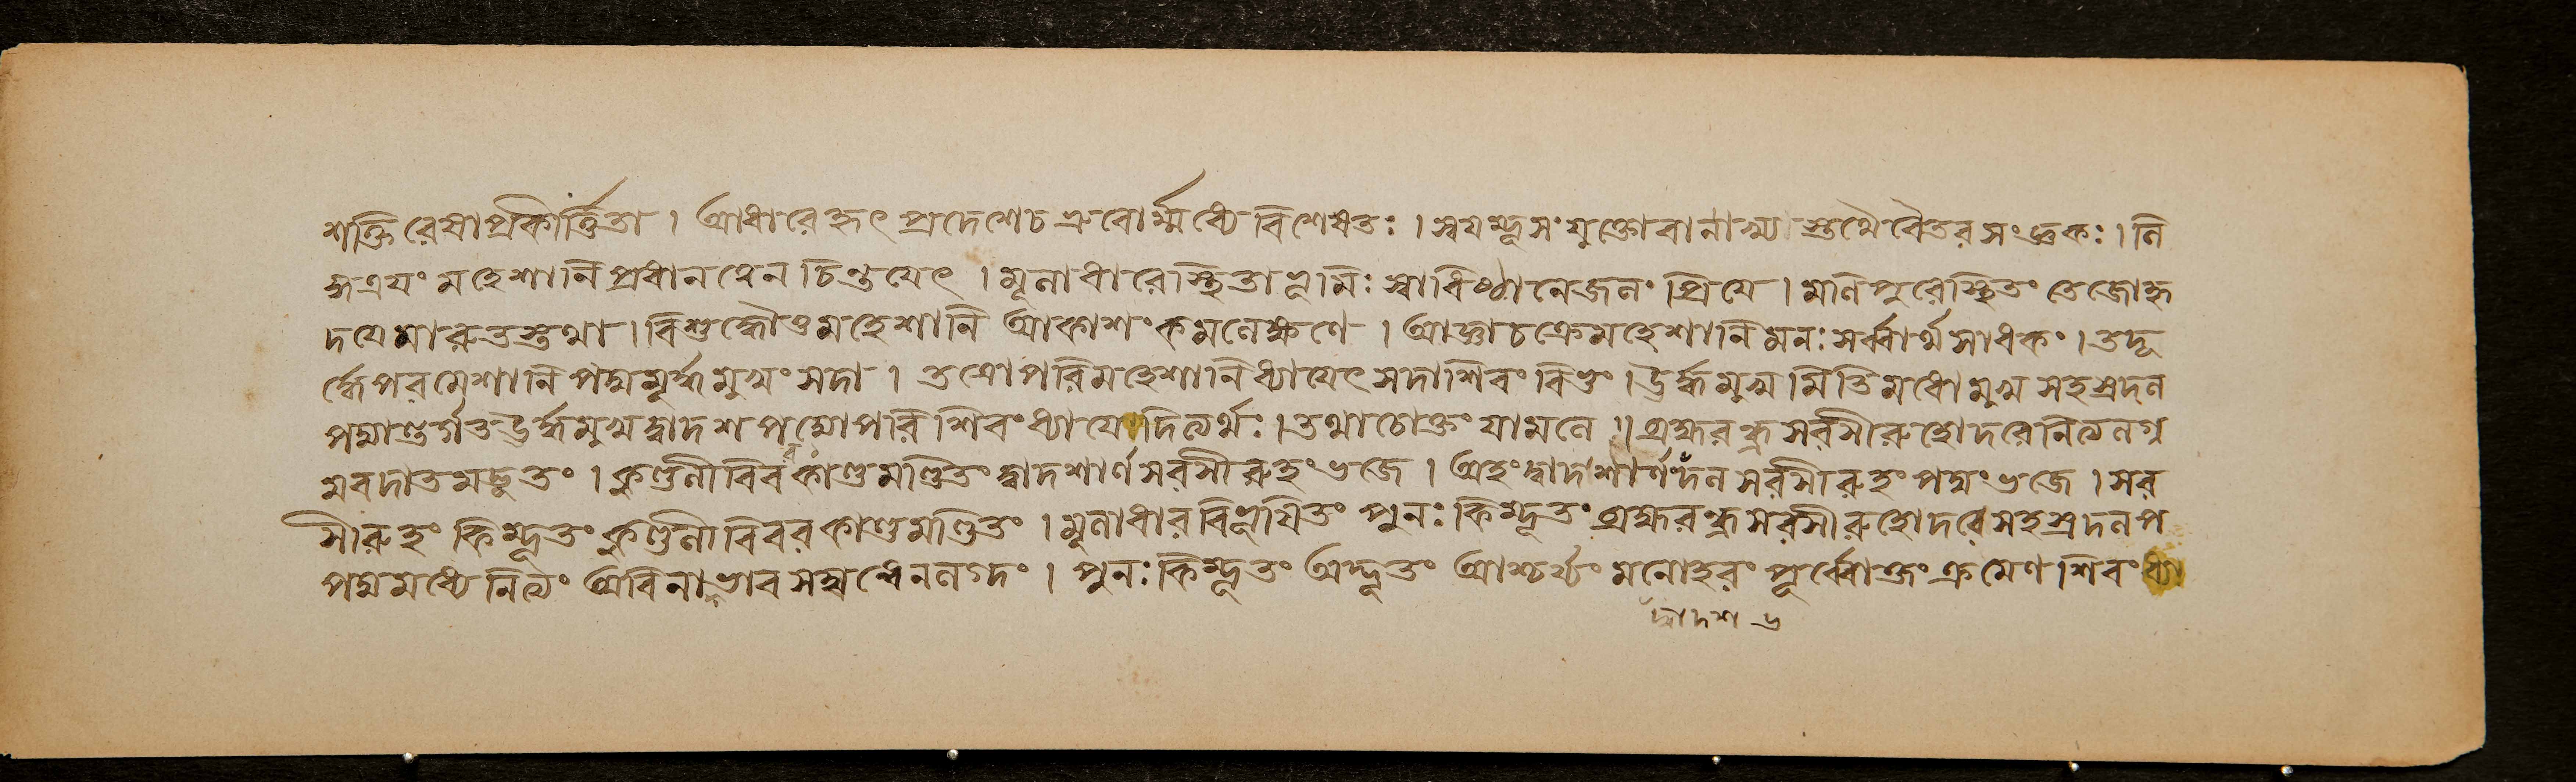 শক্তিরেষাপ্রকীর্ত্তিতা । আধারেহৃৎ প্রদেশেচভ্রুবোর্ম্মধ্যে বিশেষতঃ । স্বয়ম্ভূসংযুক্তোবানাখ্য স্তথৈবেতরসংজ্ঞকঃ । লি
ঙ্গত্রয়ং মহেশানিপ্রধানত্বেন চিন্তয়েৎ । মূলাধারেস্থিতাভূমিঃ স্বাধিষ্ঠানেজলং প্রিয়ে । মণিপুরেস্থিতং তেজোহৃ
দয়েমারুতস্তথা । বিশুদ্ধৌতুমহেশানি আকাশংকমলেক্ষণে । আজ্ঞাচক্রেমহেশানিমনঃ সর্ব্বার্থসাধকং । তদূ
র্দ্ধেপরমেশানি পদ্মমূর্দ্ধমুখং সদা । তত্রোপরিমহেশানিধ্যায়েৎ সদাশিবং বিভুং । ঊর্দ্ধমুখমিতিমধোমুখসহস্রদল
পদ্মান্তর্গতঊর্দ্ধমুখদ্বাদশপদ্মোপরি শিবংধ্যায়েদিত্যর্থঃ । তথাচোক্তং যামলে ॥ ব্রহ্মরন্ধ্রসরসীরুহোদরেনিত্যলগ্ন
মবদাতমদ্ভুতং । কুণ্ডলীবিবরকাণ্ডমণ্ডিতং দ্বাদশার্ণসরসীরুহংভজে । অহংদ্বাদশার্ণদলসরসীরুহং পদ্মংভজে । সর
সীরুহং কিম্ভূতং কুণ্ডলীবিবরকাণ্ডমণ্ডিতং । মূলাধারবিভূষিতং পুনঃ কিম্ভূতং ব্রহ্মরন্ধ্রসরসীরুহোদরেসহস্রদলপ
পদ্মমধ্যে নিত্যং অবিনাভাবসম্বন্ধেনলগ্নং । পুনঃ কিম্ভূতং অদ্ভুতং আশ্চর্য্যং মনোহরং পূর্ব্বোক্তংক্রমেণ শিবংধ্যা
দ্বাদশ ৬